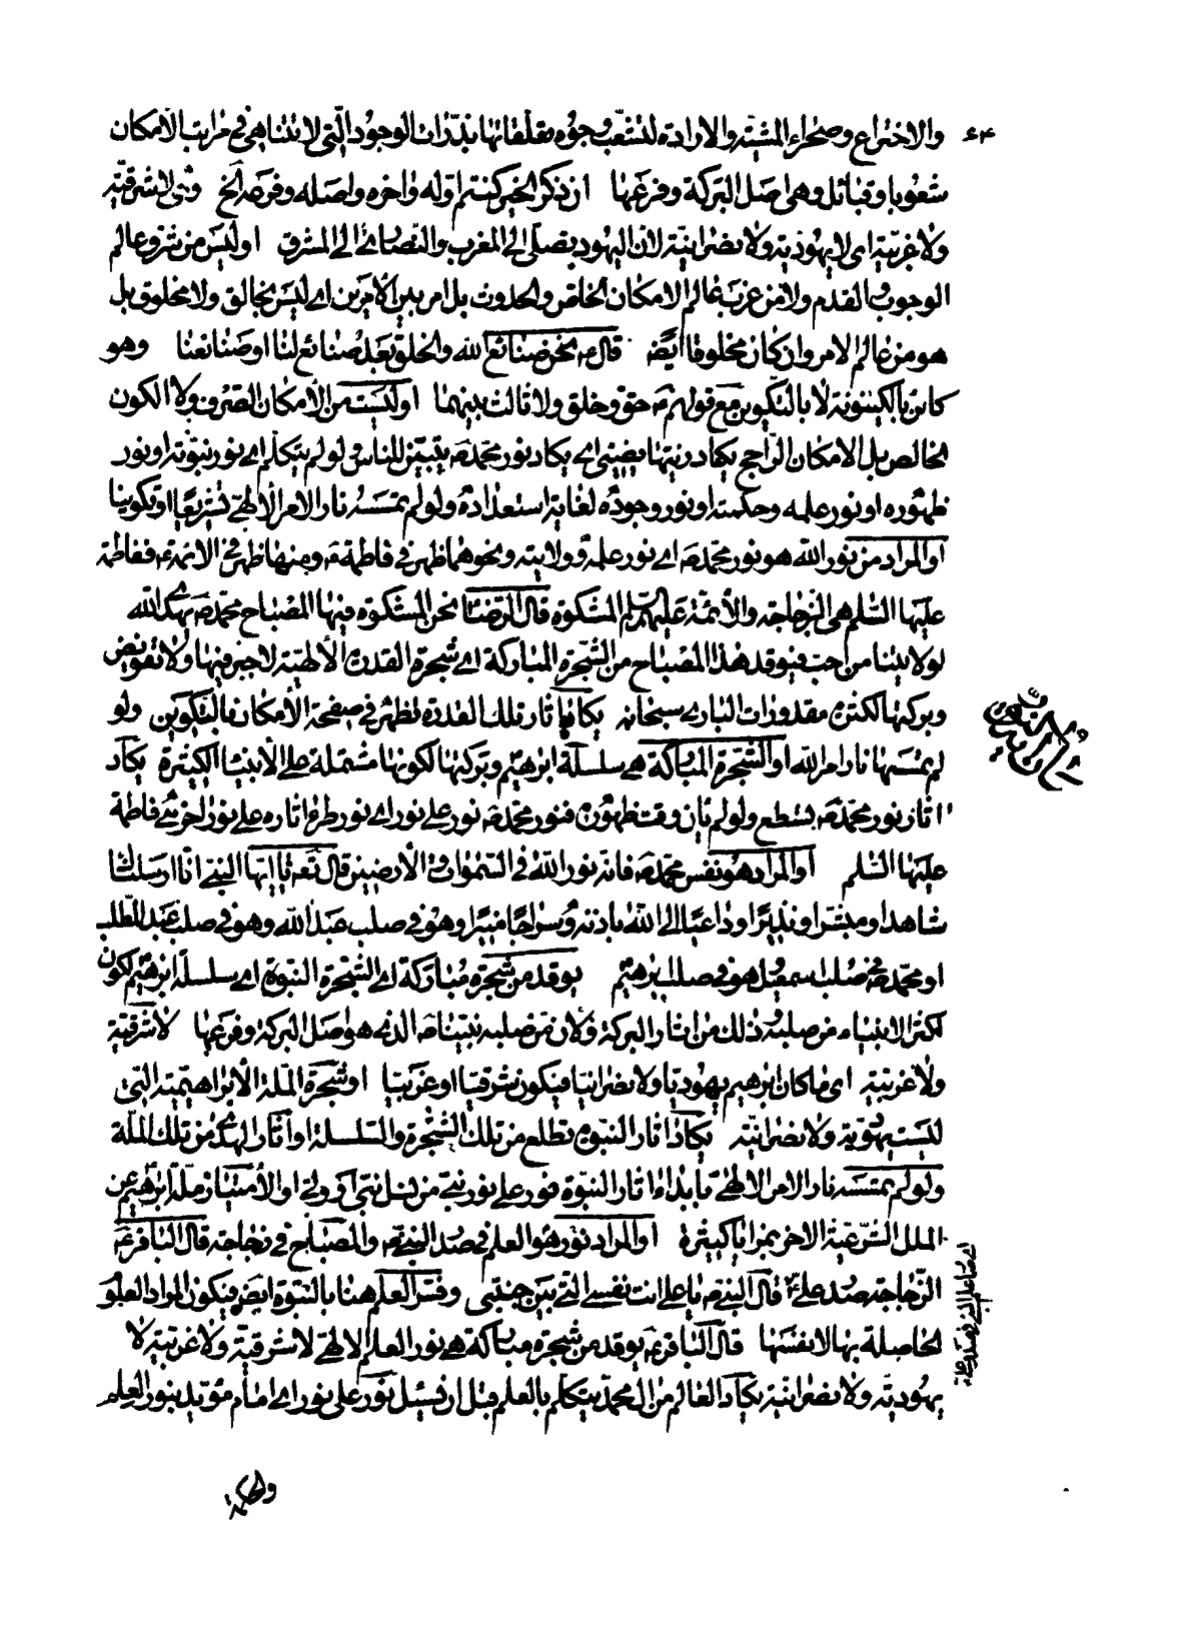 ٤٣ والاختراع وصحراء المشيّة والارادة لتشعّب وجوه تعلقاتها بذرّات الوجود الّتى لا تتناهى فى مراتب الامكان
شعوبا وقبائل وهى اصل البركة وفرعها ان ذكر الخير كنتم اوّله واخره واصله وفرعه الخ وهى لا شرقيّة
ولا غربيّة اى لا يهوديّة ولا نصرانيّة لان اليهود تصلّى الى المغرب والنّصارى الى المشرق او ليس من شرق عالم
الوجوب والقدم ولا من غرب عالم الامكان الخاص والحدوث بل امر بين الامرين اى ليس بخالق ولا مخلوق بل
هو من عالم الامر وان كان مخلوقا ايضا قال ع نحن صنائع الله والخلق بعد صنائع لنا او صنائعنا وهو
كائن بالكينونة لا بالتّكوين مع قولهم ع حق وخلق ولا ثالث بينهما او ليست من الامكان الصّرف ولا الكون
الخالص بل الامكان الرّاجح يكاد زيتها يضيئ اى يكاد نور محمّد ص يتبيّن للنّاس ولو لم يتكلّم اى نور نبوّته او نور
ظهوره او نور علمه وحكمته او نور وجوده لغاية استعداده ولو لم تمسسه نار الامر الالهىّ تشريعيّا او تكوينيا
او المراد من نور الله هو نور محمّد ص اى نور علمه وولايته ونحوهما ظهر فى فاطمة ع ومنها ظهر فى الائمّة ع ففاطمة
عليها السّلم هى الزجاجة والأئمّة عليهم السّلم المشكوة قال الرّضا ع نحن المشكوة فيها المصباح محمّد ص يهدى الله
لولايتنا من احبّ فيوقد هذا المصباح من الشّجرة المباركة اى شجرة القدرة الالهيّة لا جبر فيها ولا تفويض
وبركتها لكثرة مقدورات البارى سبحانه يكاد اثار تلك القدرة تظهر فى صفحة الامكان بالتّكوين ولو
لم تمسسها نار امر الله او الشّجرة المباركة هى سلسلة ابرهيم وبركتها لكونها مشتملة على الانبياء الكثيرة يكاد
اثار نور محمّد ص يسطع ولو لم يان وقت ظهوره فنور محمّد ص نور على نور اى نور طرء اثاره على نور اخر هى فاطمة
عليها السّلم او المراد هو نفس محمّد ص فانّه نور الله فى السّموات والأرضين قال تعه يا ايّها النّبى انّا ارسلناك
شاهدا ومبشّرا ونذيرًا وداعيًا الى اللّه باذنه وسراجًا منيرًا وهو فى صلب عبد اللّه وهو فى صلب عبد المطّلب
او محمّد ص فى صلب اسمعيل هو فى صلب ابرهيم يوقد من شجرة مباركة اى الشّجرة النبوّة اى سلسلة ابرهيم لكون
اكثر الانبياء من صلبه وذلك من اثار البركة ولان من صلبه نبيّنا ص الذى هو اصل البركة وفرعها لا شرقيّة
ولا غربيّة اى ما كان ابرهيم يهوديّا ولا نصرانيّا فيكون شرقيا او غربيّا او شجرة الملّة الابراهيميّة التى
ليست يهوديّة ولا نصرانيّة يكاد اثار النبوّة تطلع من تلك الشّجرة والسّلسلة او اثار الهدى من تلك الملّة
ولو لم تمسسه نار الامر الالهىّ بابداء اثار النبوّة نور على نور نبىّ من نسل نبىّ او ولىّ او الامتياز ملّة ابرهيم عن
الملل الشّرعيّة الاخر بمزايا كثيرة او المراد نور هو العلم فى صدر النّبى ص والمصباح فى زجاجة قال الباقر ع
الزّجاجة صدر على ع قال النّبى ص يا على انت نفسى الّتى بين جنبىّ وفسّر العلم هنا بالنّبوّة ايضا فيكون المراد العلوم
الحاصلة بها لا نفسها قال الباقر ع يوقد من شجرة مباركة هى نور العلم الالهىّ لا شرقيّة ولا غربيّة لا
يهوديّة ولا نصرانيّة يكاد العالم من ال محمّد يتكلّم بالعلم قبل ان يسئل نور على نور اى امام مؤيّد بنور العلم
والحكمة